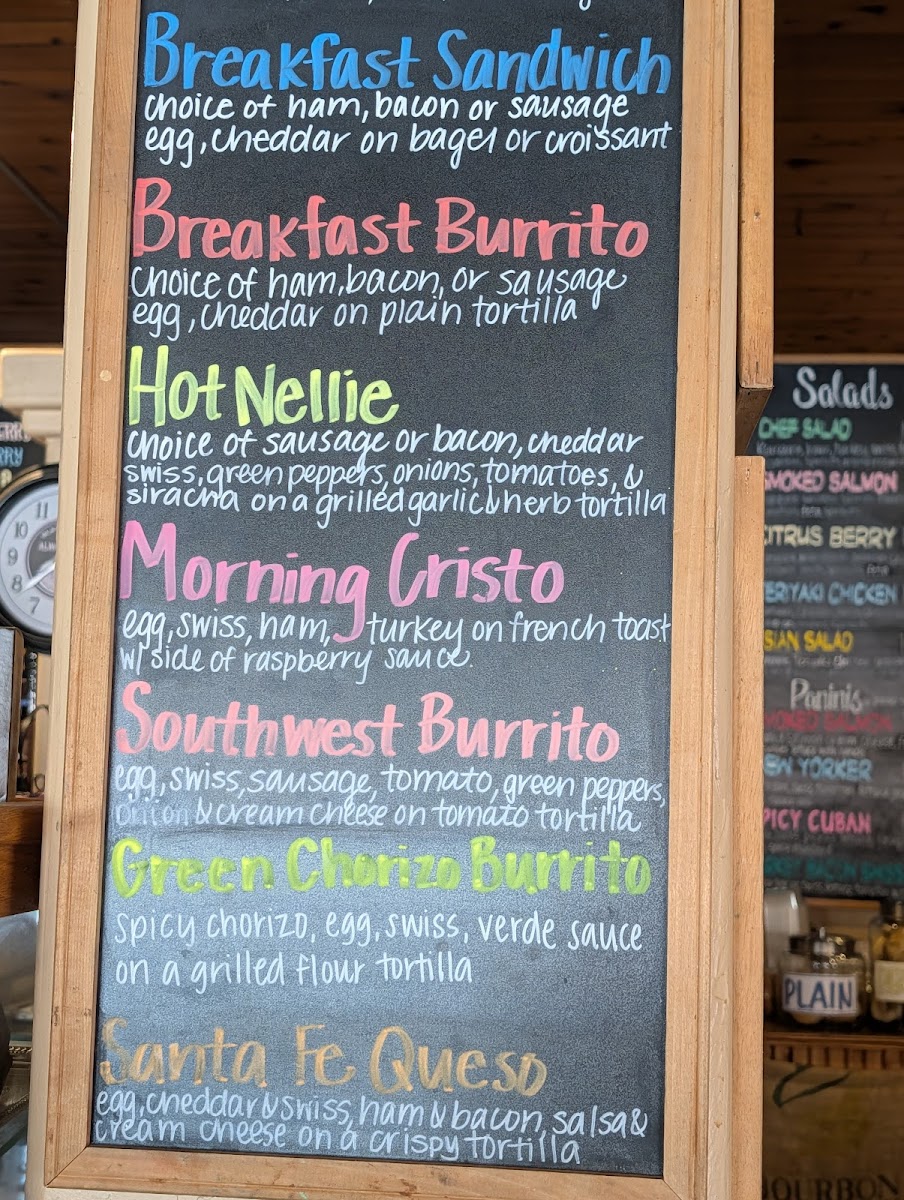 Breakfast Sandwich
choice of ham, bacon or sausage
egg, cheddar on bagel or croissant
Breakfast Burrito
choice of ham, bacon, or sausage
egg, cheddar on plain tortilla
Hot Nellie
choice of sausage or bacon, cheddar
swiss, green peppers, onions, tomatoes, &
siracha on a grilled garlic & herb tortilla
Morning Cristo
egg, swiss, ham, turkey on french toast
w/ side of raspberry sauce.
Southwest Burrito
egg, swiss, sausage, tomato, green peppers,
onion & cream cheese on tomato tortilla
Green Chorizo Burrito
spicy chorizo, egg, swiss, verde sauce
on a grilled flour tortilla
Santa Fe Queso
egg, cheddar & swiss, ham & bacon, salsa &
cream cheese on a crispy tortilla
Salads
CHEF SALAD
SMOKED SALMON
CITRUS BERRY
TERIYAKI CHICKEN
ASIAN SALAD
Paninis
SMOKED SALMON
NEW YORKER
SPICY CUBAN
PLAIN
BOURBON
10
11
9
8
7